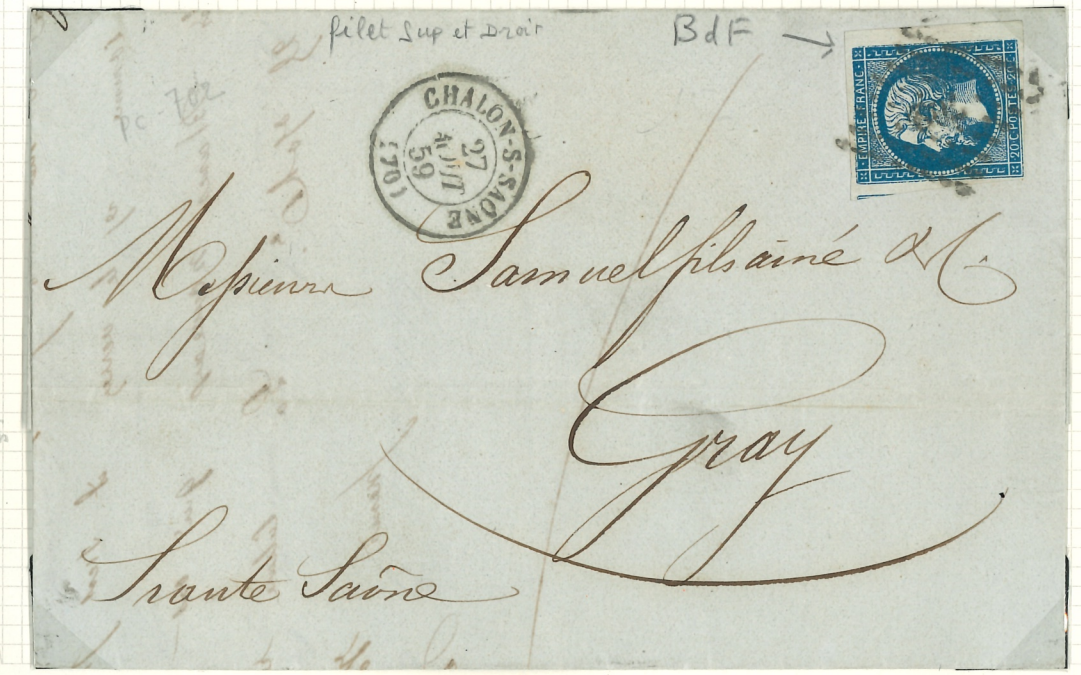 filet Sup et Droit
BdF
pc 702
CHALON-S-SAÔNE
27
AOUT
59
(70)
EMPIRE FRANC.
20 C. POSTES 20 C.
Messieurs Samuel fils ainé & C.
Gray
haute Saône